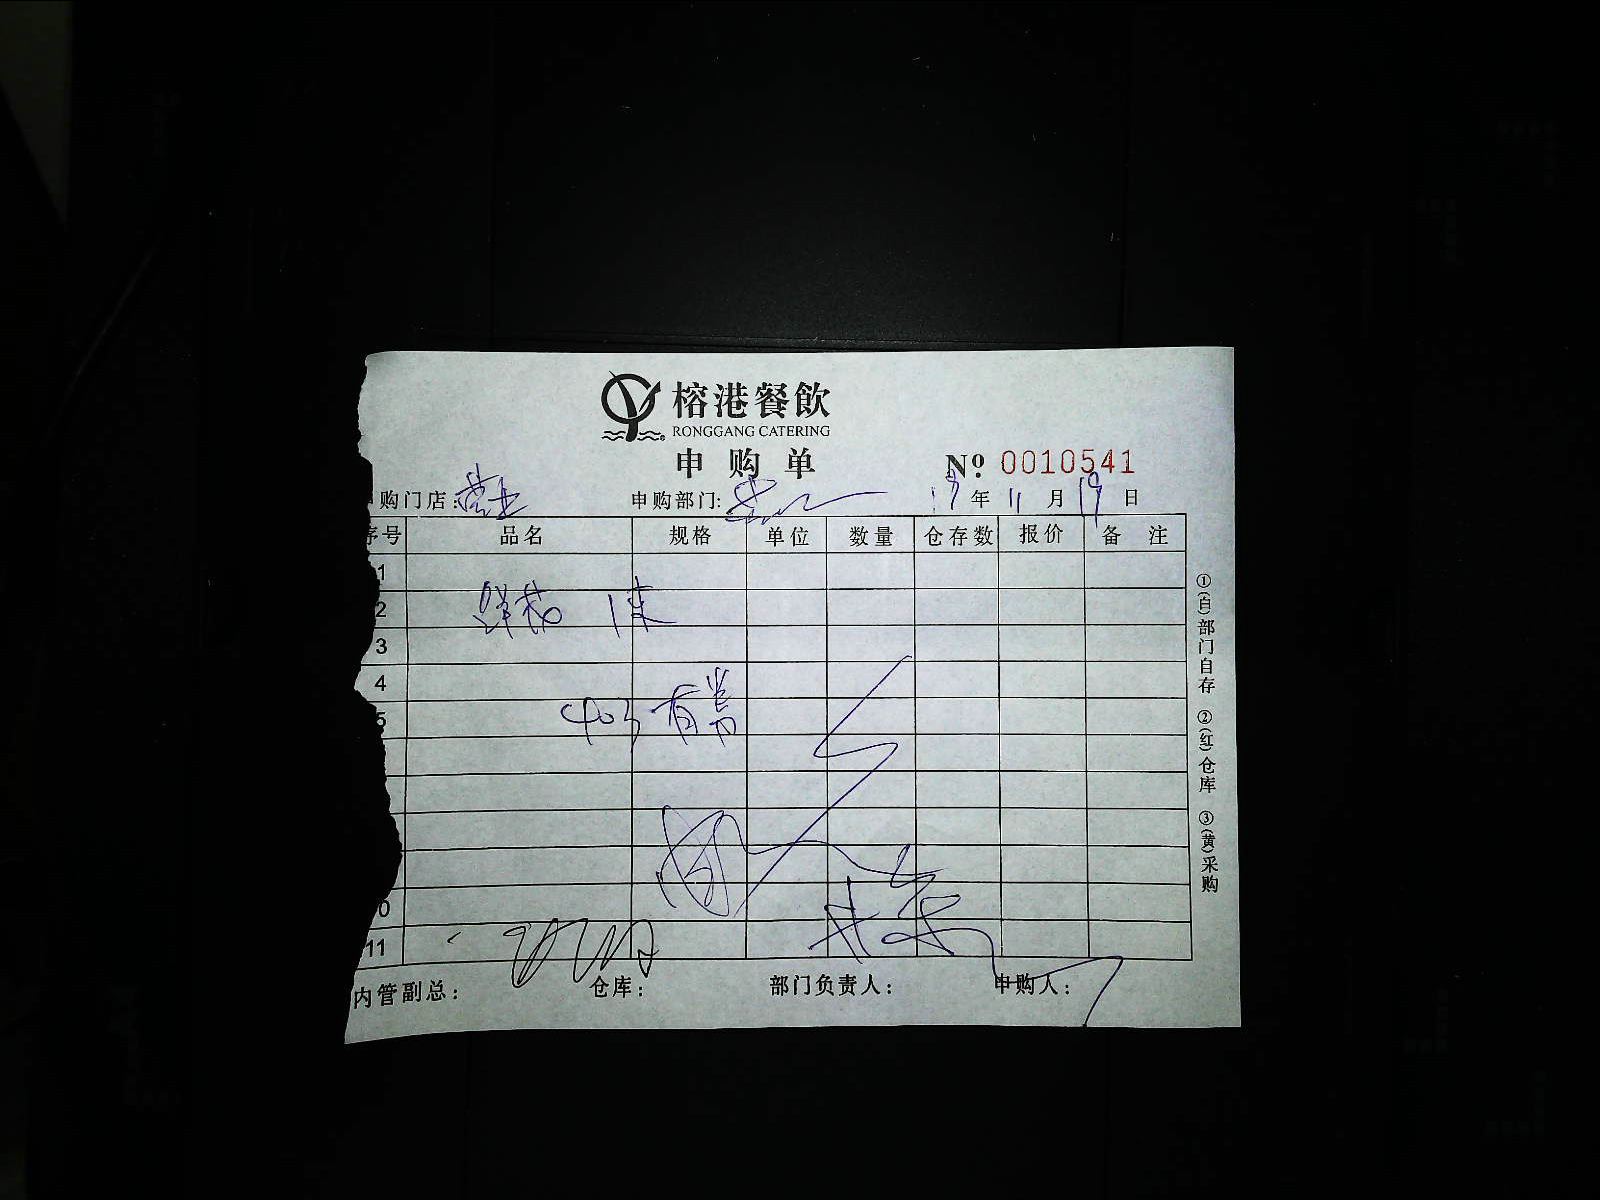 榕港餐飲
RONGGANG CATERING
申购单
Nº 0010541
购门店: 申购部门: 17年11月19日
序号 品名 规格 单位 数量 仓存数 报价 备注
1
2 鲜花 1束
3
4
5 403 有赏
0
11
内管副总: 仓库: 部门负责人: 申购人:
①(白)部门自存 ②(红)仓库 ③(黄)采购